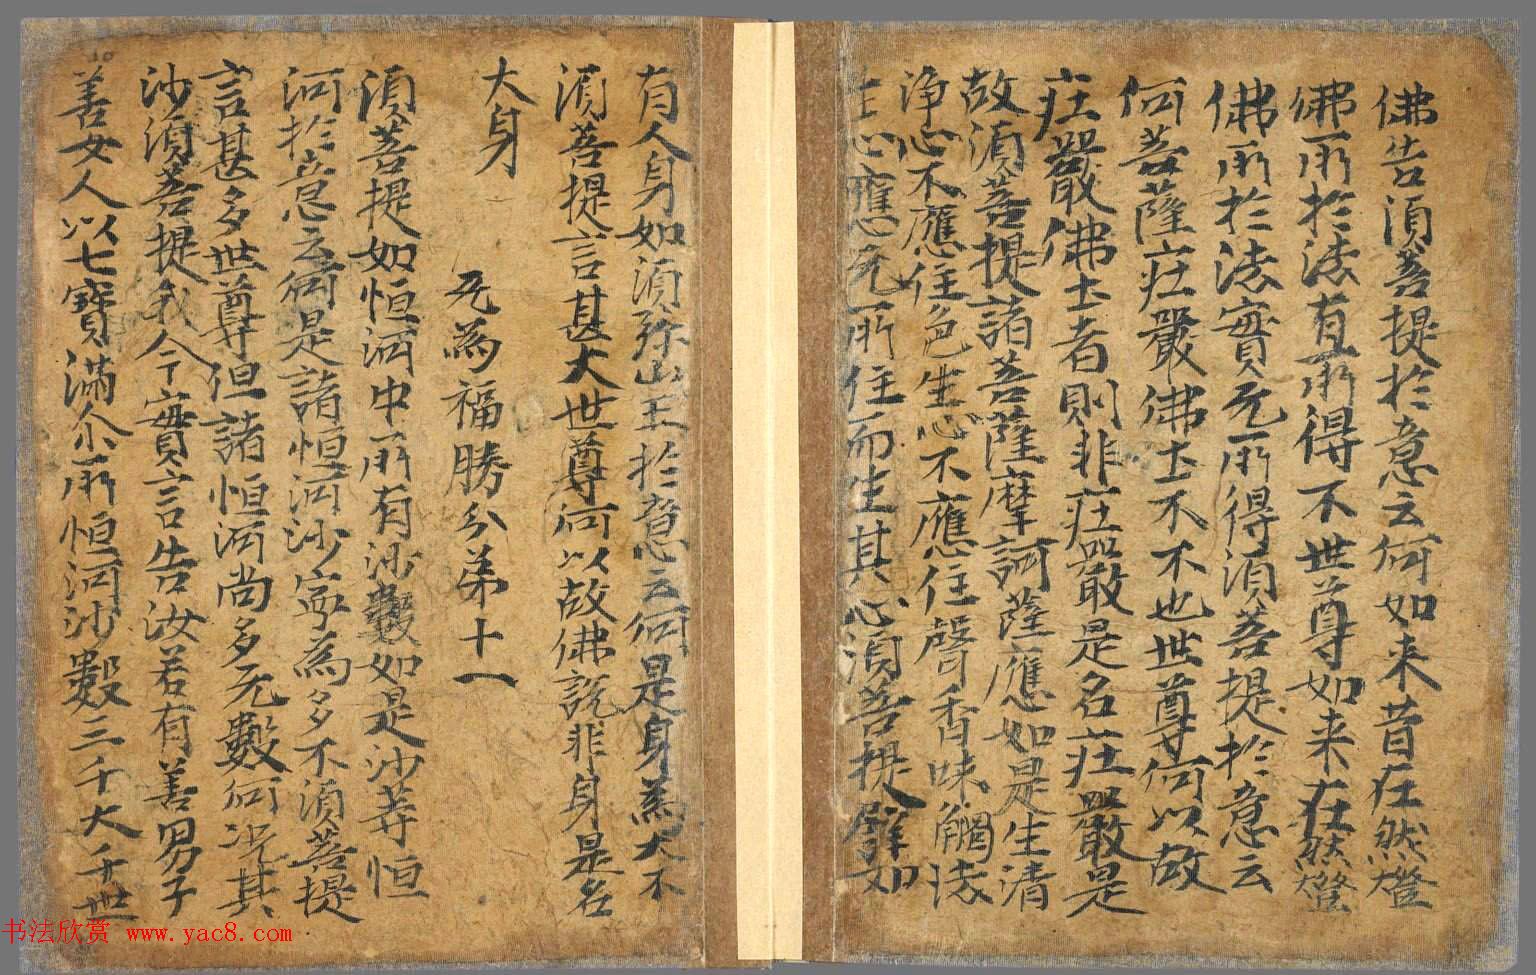 佛告須菩提扵意云何如来昔在然燈
佛所扵法有所得不世尊如来在然燈
佛所扵法實无所得須菩提扵意云
何菩薩庄嚴佛土不不也世尊何以故
庄嚴佛土者則非庄嚴是名庄嚴是
故須菩提諸菩薩摩訶薩應如是生清
淨心不應住色生心不應住聲香味觸法
生心應无所住而生其心須菩提譬如
有人身如須弥山王扵意云何是身為大不
須菩提言甚大世尊何以故佛說非身是名
大身
无為福勝分弟十一
須菩提如恒河中所有沙數如是沙等恒
河扵意云何是諸恒河沙寧為多不須菩提
言甚多世尊但諸恒河尚多无數何况其
沙須菩提我今實言告汝若有善男子
善女人以七寶滿尒所恒河沙數三千大千世
书法欣赏 www.yac8.com